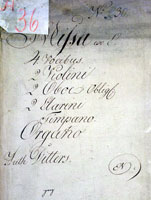 36
No 36.
Missa in C
4 Vocibus
2 Violini
2 Oboe Oblig.
2 Clareni
Timpano
Organo
Auth Ditters.